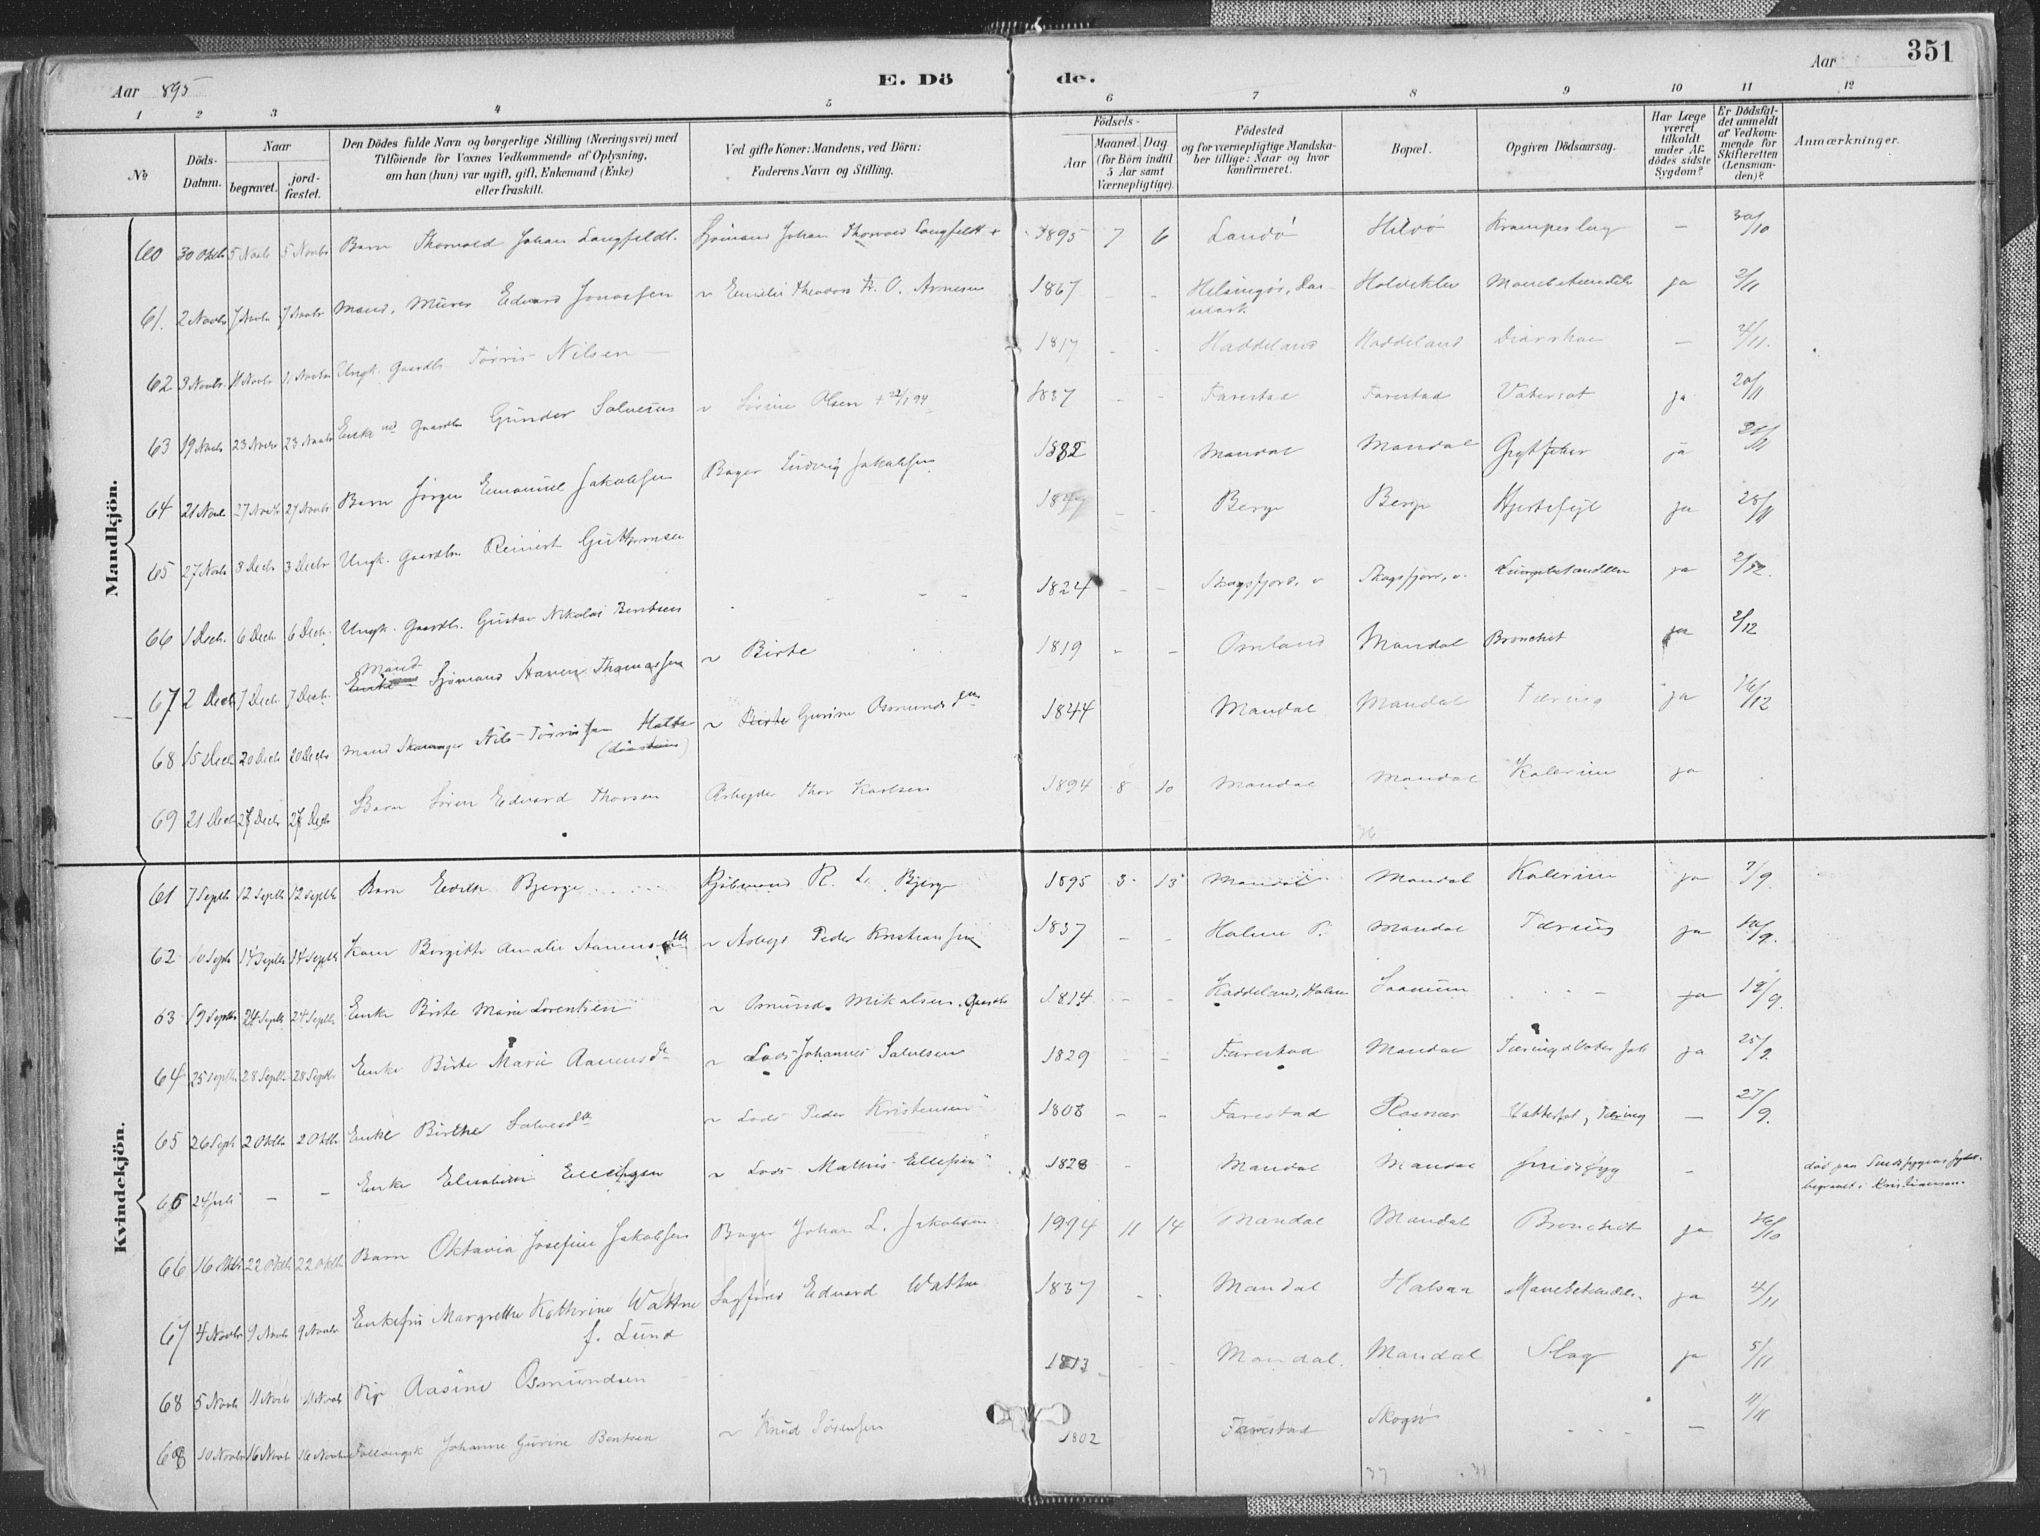 351
Aar 895 E. Dö de. Aar
1 2 3 4 5 6 7 8 9 10 11 12
№ Döds-Datum. Naar begravet. jordfæstet. Den Dödes fulde Navn og borgerlige Stilling (Næringsvei) med Tilföiende for Voxnes Vedkommende af Oplysning, om han (hun) var ugift, gift, Enkemand (Enke) eller fraskilt. Ved gifte Koner: Mandens, ved Börn: Faderens Navn og Stilling. Födsels- Aar Maaned. Dag (for Börn indtil 5 Aar samt Værnepligtige). Födested og for værnepligtige Mandskaber tillige: Naar og hvor konfirmeret. Bopæl. Opgiven Dödsaarsag. Har Læge været tilkaldt under Afdödes sidste Sygdom? Er Dödsfaldet anmeldt af Vedkommende for Skifteretten (Lensmanden)? Anmærkninger.
Mandkjön.
60 30 Oktb 5 Novbr 5 Novbr Barn Thorvald Johan Langfeldt. Sjömand Johan Thorvald Langfeldt 1895 7 6 Landö Hilvö Krampeslag — 30/10
61. 2 Novbr 7 Novbr 7 Novbr Mand, Murer Edvard Jonassen ~ Emilie Theodora Fr. O. Arnesen 1867 - - Helsingör, Danmark Holvikler ja 2/11
62 3 Novbr. 11 Novbr 11 Novbr Ungk. Gaardbr. Törris Nilsen — 1817 - - Haddeland Haddeland — 4/11.
63 19 Novbr 23 Novbr 23 Novbr Enkemd Gaardbr Gunder Salvesen ~ Sörine Olsen 1837 - - Farestad Farestad Vatersot ja 20/11
64 21 Novb. 27 Novbr 27 Novbr Barn Jörgen Emanuel Jakobsen Bager Ludvig Jakobsen 1882 Mandal Mandal ja
65 27 Novbr 3 Decbr 3 Decbr Ungk. Gaardbr. Reinert Guttormsen - - Berge Berge Hjertefejl ja 28/11
66 1 Decb. 6 Decb 6 Decb. Ungk. Gaardbr. Gustav Nikolai Bentsen 1824 - - Skogsfjord, v Skogsfjord, v. Lungebetændelse ja 2/12.
67 2 Decb 7 Decb 7 Decb. Mand Sjömand Aanen Thomassen ~ Birte 1819 - - Omland Mandal Bronchit ja 2/12
68 15 Decb 20 Decb 20 Decbr Mand Nils Törrissen Hatte ~ Gurine Osmundsdn 1844 Mandal Mandal Tæring ja 16/12
69 21 Decb 27 Decbr 27 Decbr Barn Sören Edvard Thorsen Arbejder Thor Karlsen 1894 8 10 Mandal Mandal Kolerine ja
36
Kvindekjön.
61 7 Septb 12 Septb 12 Septb Barn Edith Bjerge R. L. Bjerge 1895 3 13 Mandal Mandal Kolerine ja 7/9.
62 10 Septb 14 Septb 14 Septb Kone Birgitte Amalie Aanensdtr ~ Arbejd Peder Kristiansen 1837 - - Halme P. Mandal Tæring ja 10/9.
63 19 Septb. 24 Septb 24 Septb Enke Birte Marie Lorentsen ~ Osmund Mikalsen, Gaardb 1814 - - Haddeland, Halme Saanum - ja 19/9.
64 25 Septb 28 Septb 28 Septb Enke Birte Marie Aanensdr ~ Lods Johannes Salvesen 1829 - - Farestad Mandal ja 25/9
65 26 Septb 2 Oktb 2 Oktb Enke Birthe Salvesdtr ~ Lods Peder Kristensen 1808 - - Farestad Rosnær Vattersot, Tæring — 27/9.
65 24 Juli — — Enke Elisabeth Ellefsen ~ Lods Mathis Ellefsen 1828 - Mandal Mandal Sindssyg — död paa Sindssygeasylet. begravet i Kristiansan.
66 16 Oktbr 22 Oktb. 22 Oktb Barn Oktavia Josefine Jakobsen Bager Johan L. Jakobsen 1994 11 14 Mandal Mandal Bronchit ja 16/10
67 4 Novbr 9 Novbr 9 Novbr Enkefru Margrethe Kathrine Wattne f. Lund Sagförer Edvard Wattne 1837 - - Mandal Halsaa Mavebetændelse. ja 4/11
68 5 Novbr 11 Novb 11 Novb Pige Aasine Osmundsen - 1813 - - Mandal. Mandal Slag ja 5/11
68 10 Novbr 16 Novb 16 Novbr Johanne Gurine Bentsen ~ Knud Sörensen 1802 Farestad Skogsö —
37 31